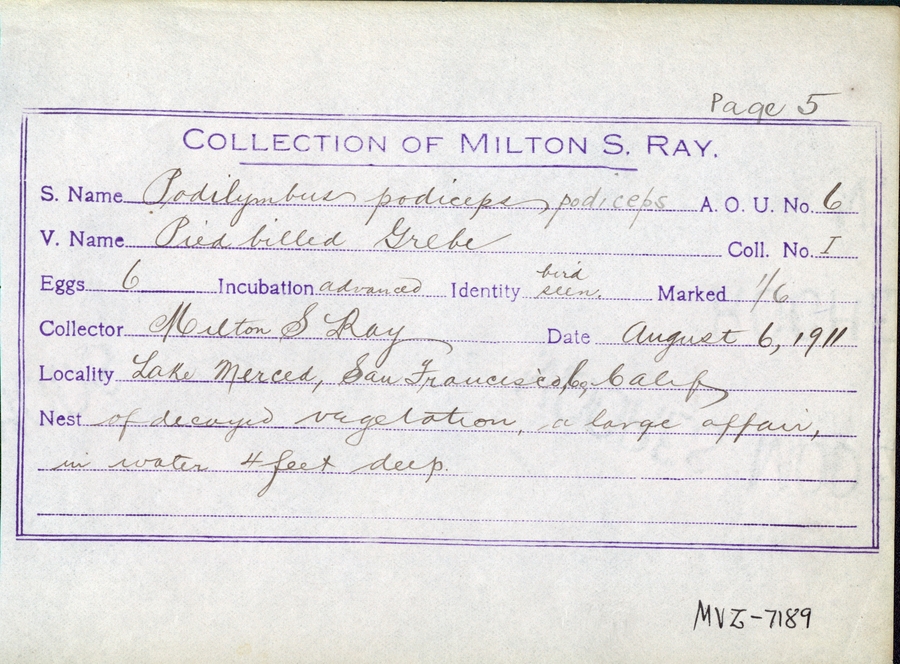 Page 5
COLLECTION OF MILTON S. RAY.
S. Name Podilymbus podiceps podiceps A. O. U. No. 6
V. Name Pied billed Grebe Coll. No. I
Eggs 6 Incubation advanced Identity bird seen. Marked 1/6
Collector Milton S Ray Date August 6, 1911
Locality Lake Merced, San Francisco Co, Calif
Nest of decayed vegetation, a large affair,
in water 4 feet deep.
MVZ-7189